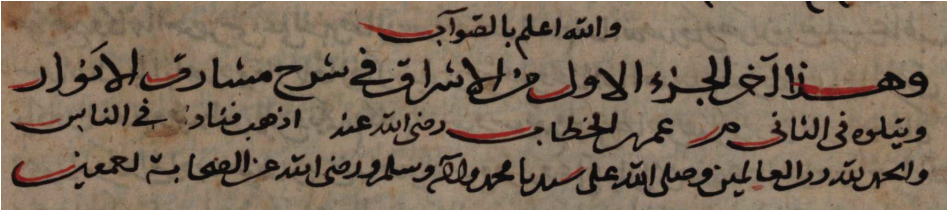 والله اعلم بالصواب
وهذا آخر الجزء الاول من الاشراق في شرح مشارق الانوار
ويتلوه في الثاني م عمر بن الخطاب رضي الله عنه اذهب فناد في الناس
والحمد لله رب العالمين وصلى الله على سيدنا محمد وآله وسلم ورضي الله عن الصحابة اجمعين